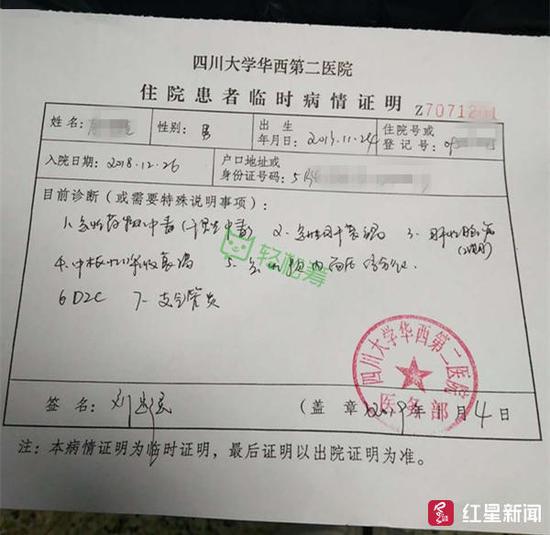 四川大学华西第二医院
住院患者临时病情证明 Z7071201
姓名: 性别: 男 出生年月日: 2013.11.24 住院号或登记号: 09
入院日期: 2018.12.26 户口地址或身份证号码: 5
目前诊断(或需要特殊说明事项):
1.急性药物中毒 2.急性肝衰竭 3.肝性脑病
4.中枢性呼吸衰竭 5.
6 DIC 7.支气管炎
轻松筹
四川大学华西第二医院
医务部
签名: (盖章) 2019年1月4日
注: 本病情证明为临时证明,最后证明以出院证明为准。
红星新闻